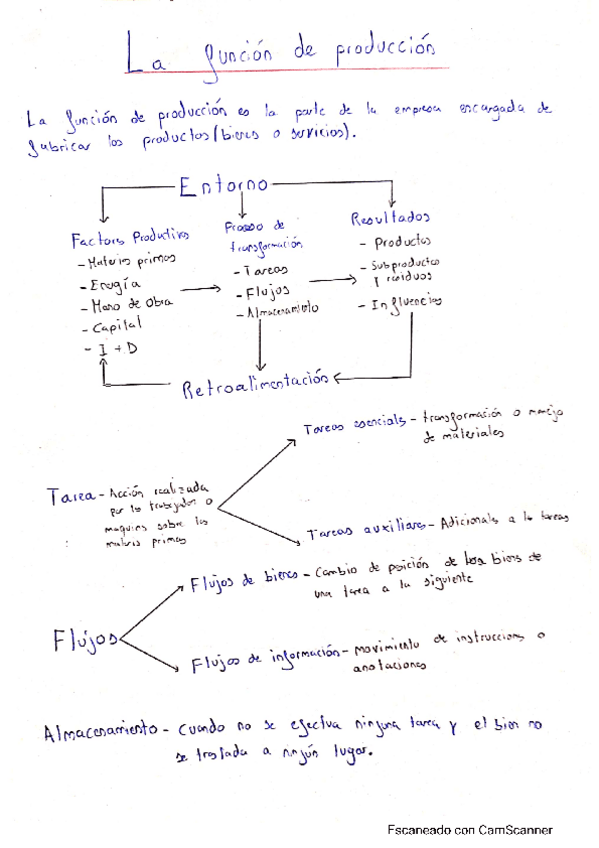 La función de producción
La función de producción es la parte de la empresa encargada de
fabricar los productos (bienes o servicios).
Entorno
Factores Productivos
- Materias primas
- Energía
- Mano de Obra
- Capital
- I + D
Proceso de
transformación
- Tareas
- Flujos
- Almacenamiento
Resultados
- Productos
- Subproductos
y residuos
- Influencias
Retroalimentación
Tareas esenciales - transformación o manejo
de materiales
Tarea - Acción realizada
por los trabajadores o
maquinas sobre las
materias primas
Tareas auxiliares - Adicionales a la tareas
Flujos de bienes - Cambio de posición de los bienes de
una tarea a la siguiente
Flujos
Flujos de información - movimiento de instrucciones o
anotaciones
Almacenamiento - Cuando no se efectua ninguna tarea y el bien no
se traslada a ningún lugar.
Escaneado con CamScanner